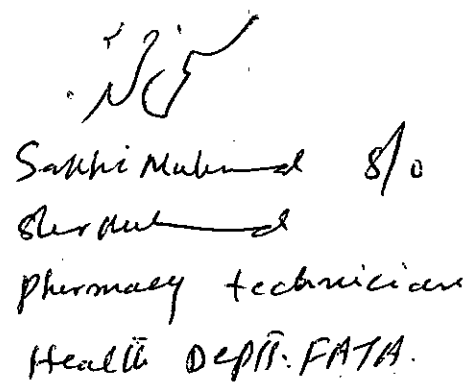 Sakhi Muhmmad S/o
Sher Muhmmad
pharmacy technician
Health Deptt. FATA.